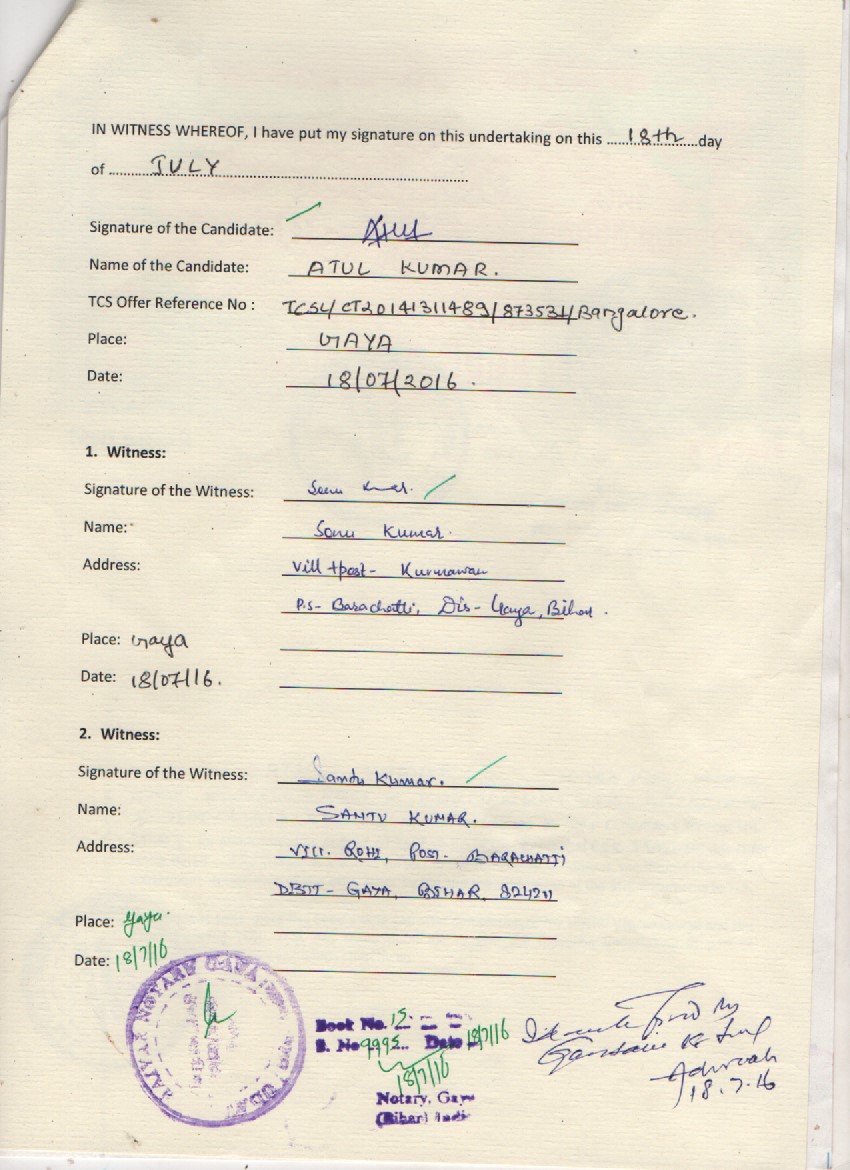 IN WITNESS WHEREOF, I have put my signature on this undertaking on this ......18th.....day
of ............JULY..............................................................
Signature of the Candidate: Atul
Name of the Candidate: ATUL KUMAR.
TCS Offer Reference No : TCSL/CT20141311489/873531/Bangalore.
Place: GAYA
Date: 18/07/2016.
1. Witness:
Signature of the Witness: Sonu Kumar.
Name: Sonu Kumar.
Address: Vill+post- Kurmawan
P.S- Barachatti, Dis- Gaya, Bihar.
Place: Gaya
Date: 18/07/16.
2. Witness:
Signature of the Witness: Santu Kumar.
Name: SANTU KUMAR.
Address: VILL. ROHI, POST- BARACHATTI
DISTT- GAYA, BIHAR, 824211
Place: Gaya.
Date: 18/7/16
NOTARY GAYA
Book No. 15
S. No 9995 Date 18/7/16
18/7/16
Notary, Gaya
(Bihar) India
Identified by
Advocate
18.7.16